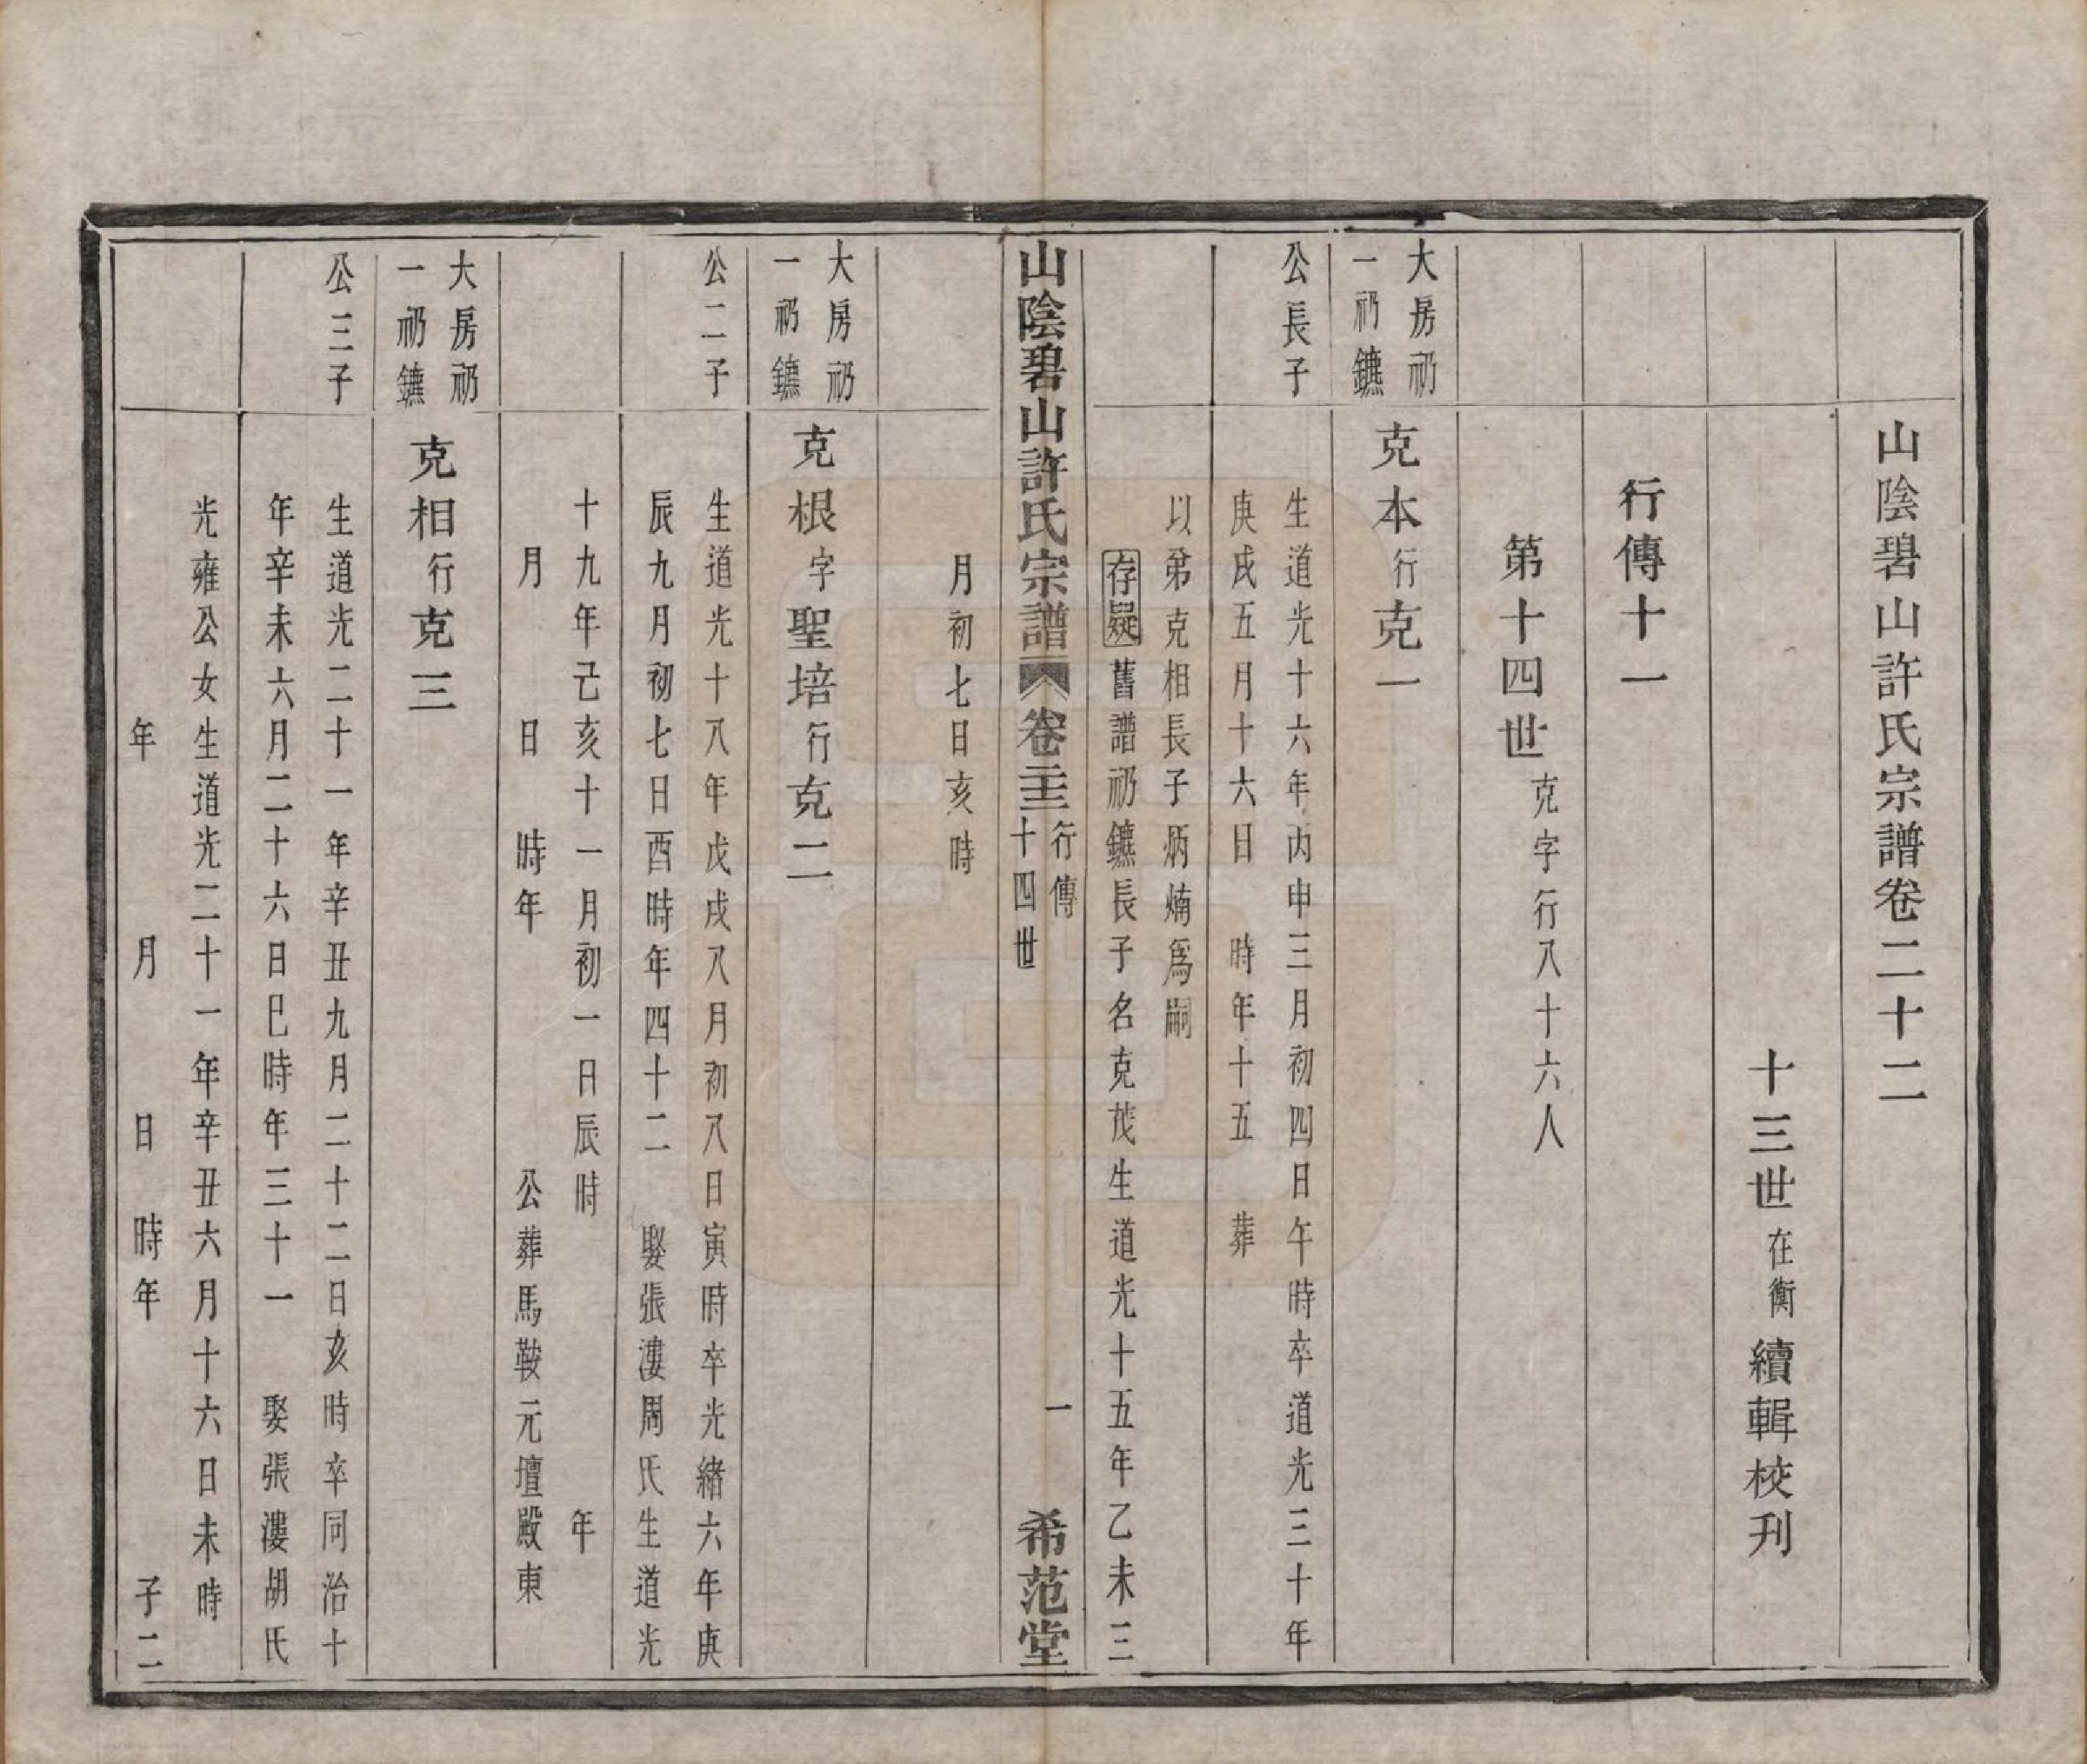 山陰碧山許氏宗譜卷二十二
十三世在衡續輯校刊
行傳十一
第十四世克字行八十六人
大房礽
一礽鑣
克本行克一
公長子
生道光十六年丙申三月初四日午時卒道光三十年
庚戌五月十六日　時年十五　葬
以弟克相長子炳煵爲嗣
存疑舊譜礽鑣長子名克茂生道光十五年乙未三
山陰碧山許氏宗譜　卷二十二　行傳　十四世　一　希范堂
月初七日亥時
大房礽
一礽鑣
克根字聖培行克二
公二子
生道光十八年戊戌八月初八日寅時卒光緒六年庚
辰九月初七日酉時年四十二　娶張漊周氏生道光
十九年己亥十一月初一日辰時　年
月　日　時年　公葬馬鞍元壇殿東
大房礽
一礽鑣
克相行克三
公三子
生道光二十一年辛丑九月二十二日亥時卒同治十
年辛未六月二十六日巳時年三十一　娶張漊胡氏
光雍公女生道光二十一年辛丑六月十六日未時
年　月　日　時年　子二